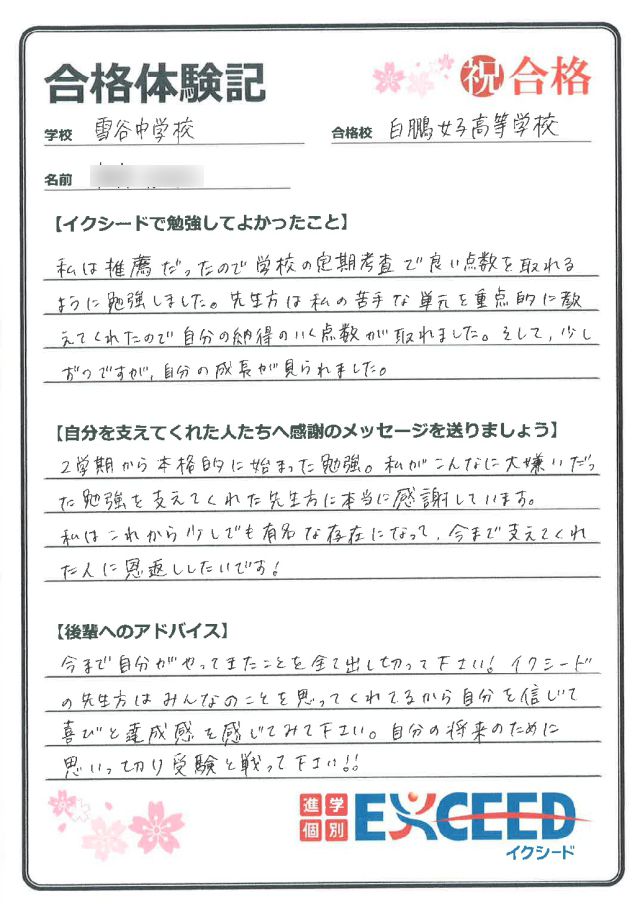 合格体験記
祝 合格
学校 雪谷中学校
合格校 白鵬女子高等学校
名前
【イクシードで勉強してよかったこと】
私は推薦だったので学校の定期考査で良い点数を取れる
ように勉強しました。先生方は私の苦手な単元を重点的に教
えてくれたので自分の納得のいく点数が取れました。そして、少し
ずつですが、自分の成長が見られました。
【自分を支えてくれた人たちへ感謝のメッセージを送りましょう】
2学期から本格的に始まった勉強。私がこんなに大嫌いだっ
た勉強を支えてくれた先生方に本当に感謝しています。
私はこれから少しでも有名な存在になって、今まで支えてくれ
た人に恩返ししたいです!
【後輩へのアドバイス】
今まで自分がやってきたことを全て出し切って下さい! イクシード
の先生方はみんなのことを思ってくれてるから自分を信じて
喜びと達成感を感じてみて下さい。自分の将来のために
思いっ切り受験と戦って下さい!!
進学
個別 EXCEED
イクシード